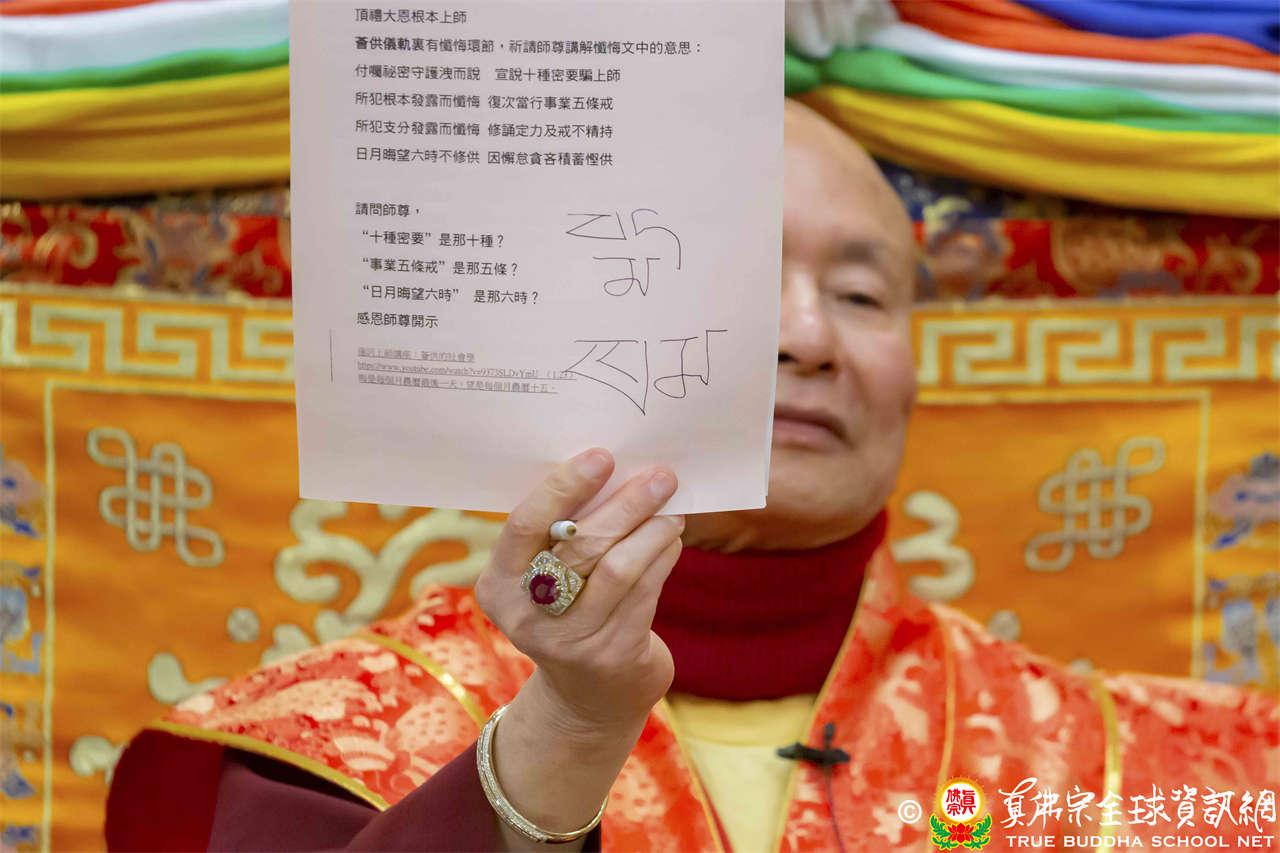 頂禮大恩根本上師
薈供儀軌裏有懺悔環節，祈請師尊講解懺悔文中的意思：
付囑祕密守護洩而說　宣說十種密要騙上師
所犯根本發露而懺悔 復次當行事業五條戒
所犯支分發露而懺悔 修誦定力及戒不精持
日月晦望六時不修供 因懈怠貪吝積蓄慳供
請問師尊，
“十種密要”是那十種？
“事業五條戒”是那五條？
“日月晦望六時”　是那六時？
感恩師尊開示
蓮訶上師講座：薈供的社會學
晦是每個月農曆最後一天，望是每個月農曆十五。
© 真佛宗全球資訊網
TRUE BUDDHA SCHOOL NET